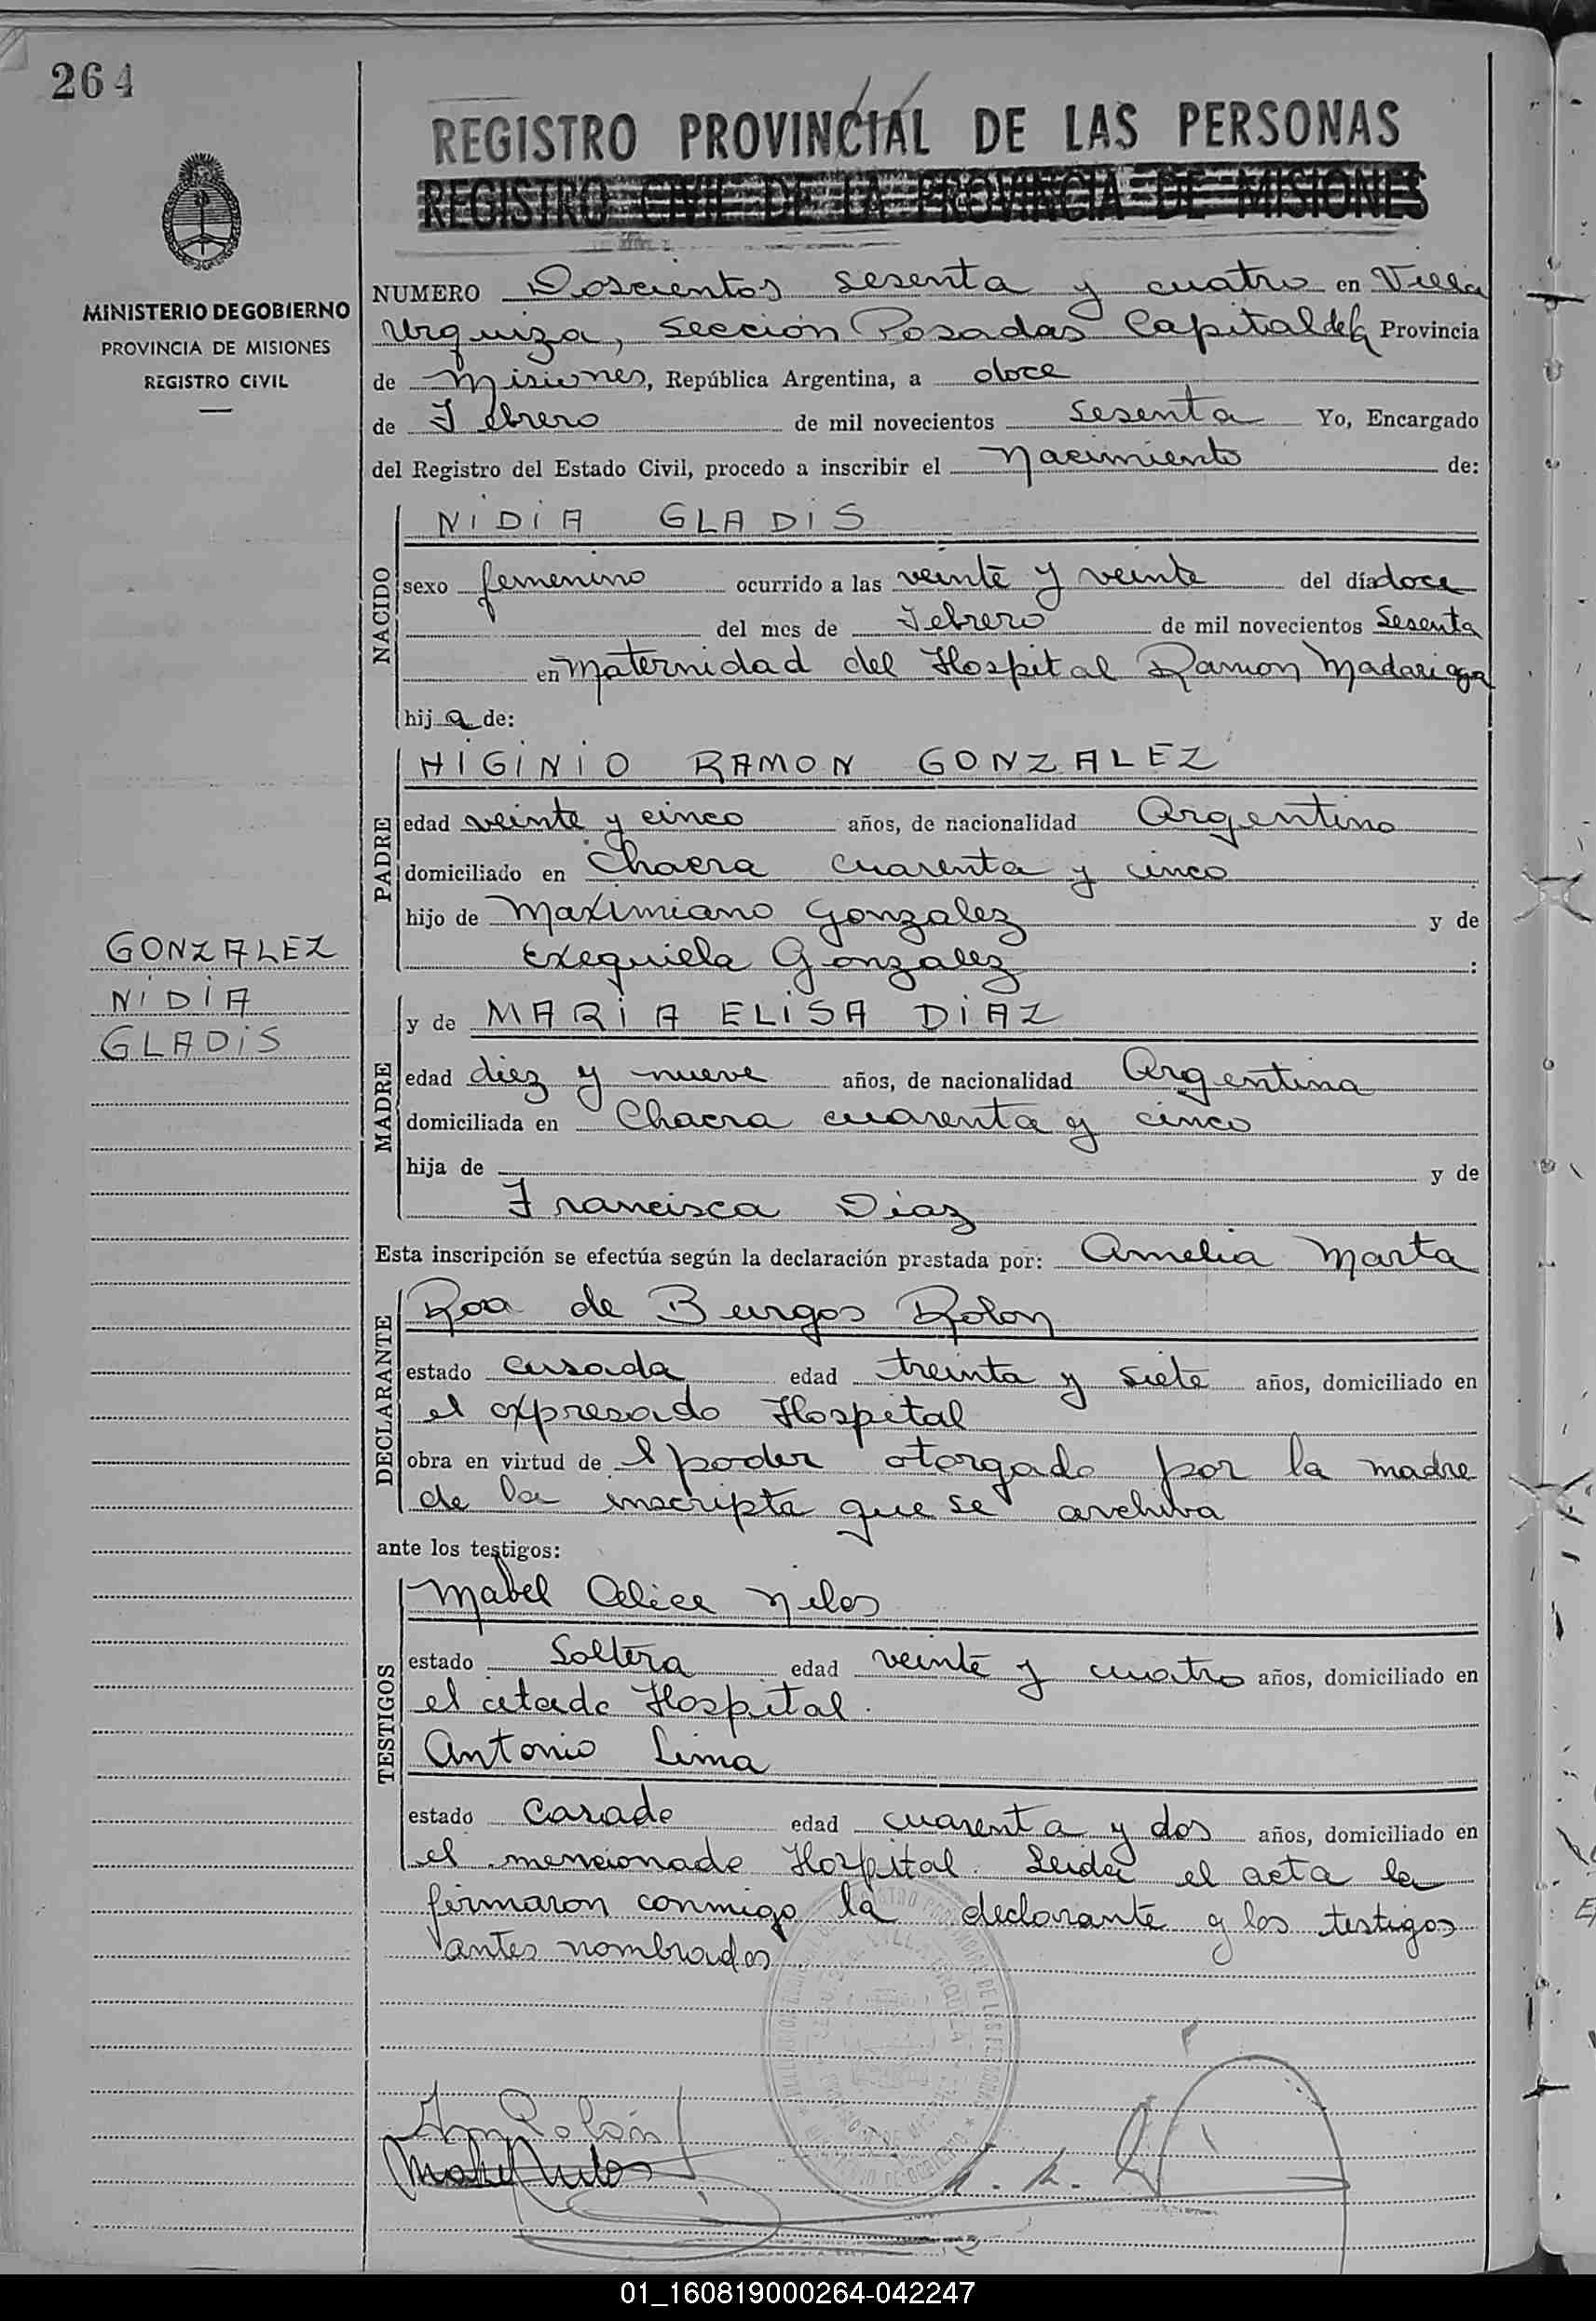 264
REGISTRO PROVINCIAL DE LAS PERSONAS
REGISTRO CIVIL DE LA PROVINCIA DE MISIONES
MINISTERIO DE GOBIERNO
PROVINCIA DE MISIONES
REGISTRO CIVIL
NUMERO Doscientos sesenta y cuatro en Villa
Urquiza, Sección Posadas Capital de la Provincia
de Misiones, República Argentina, a doce
de Febrero de mil novecientos sesenta Yo, Encargado
del Registro del Estado Civil, procedo a inscribir el Nacimiento de:
NACIDO
NIDIA GLADIS
sexo femenino ocurrido a las veinte y veinte del día doce
del mes de Febrero de mil novecientos Sesenta
en Maternidad del Hospital Ramon Madariaga
hija de:
PADRE
HIGINIO RAMON GONZALEZ
edad veinte y cinco años, de nacionalidad Argentino
domiciliado en Chacra cuarenta y cinco
hijo de Maximiano Gonzalez y de
Exequiela Gonzalez :
GONZALEZ
NIDIA
GLADIS
MADRE
y de MARIA ELISA DIAZ
edad diez y nueve años, de nacionalidad Argentina
domiciliada en Chacra cuarenta y cinco
hija de y de
Francisca Diaz
Esta inscripción se efectúa según la declaración prestada por: Amelia Marta
DECLARANTE
Roa de Burgos Rolon
estado casada edad treinta y siete años, domiciliado en
el expresado Hospital
obra en virtud de l poder otorgado por la madre
de la inscripta que se archiva
ante los testigos:
TESTIGOS
Mabel Alice Nilos
estado Soltera edad veinte y cuatro años, domiciliado en
el citado Hospital.
Antonio Lima
estado Casado edad cuarenta y dos años, domiciliado en
el mencionado Hospital. Leida el acta la
firmaron conmigo la declarante y los testigos
antes nombrados
01_160819000264-042247